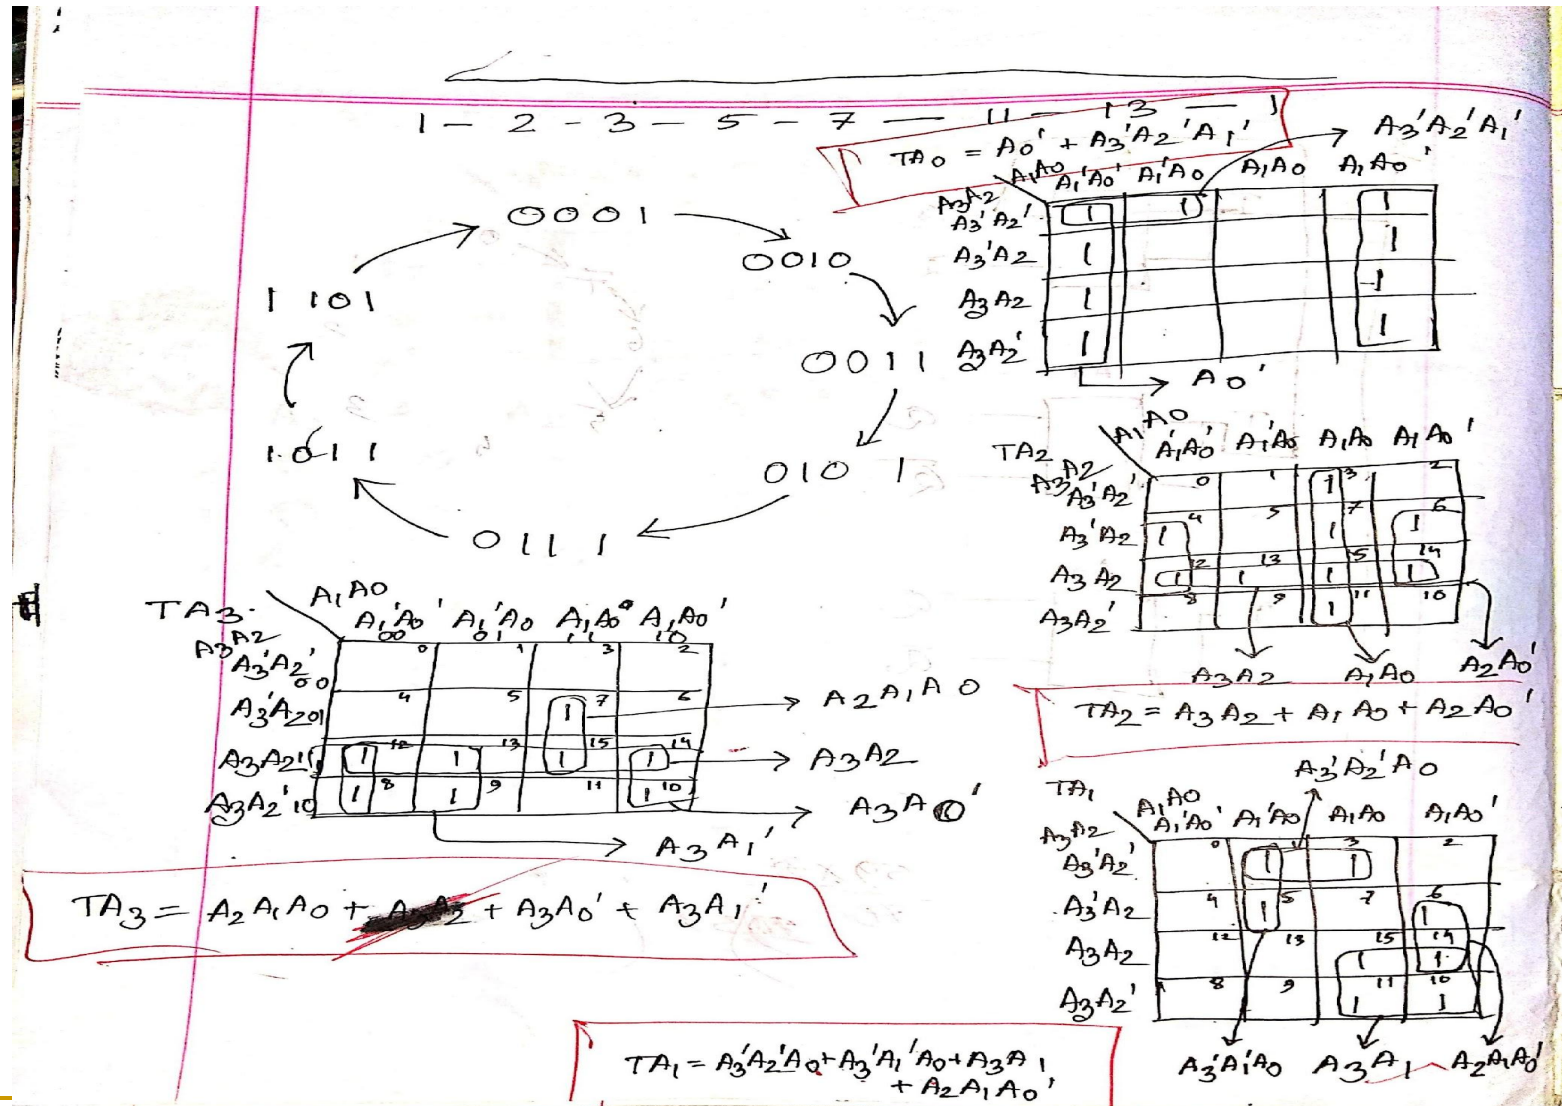 1 - 2 - 3 - 5 - 7 - 11 - 13 - 1
TA0 = A0' + A3'A2'A1'
A3'A2'A1'
A1A0
A1'A0' A1'A0 A1A0 A1A0'
A3A2
A3'A2' 1 1 1
A3'A2 1 1
A3A2 1 1
A3A2' 1 1
A0'
0001
0010
0011
0101
0111
1011
1101
TA2
A1A0
A1'A0' A1'A0 A1A0 A1A0'
A3A2
A3'A2' 0 1 1 3 2
A3'A2 1 4 5 1 7 1 6
A3A2 1 12 1 13 1 15 1 14
A3A2' 8 9 1 11 10
A3A2 A1A0 A2A0'
TA2 = A3A2 + A1A0 + A2A0'
TA3
A1A0
A1'A0' A1'A0 A1A0 A1A0'
00 01 11 10
A3A2
A3'A2' 00 0 1 3 2
A3'A2 01 4 5 1 7 6
A3A2 11 1 12 1 13 1 15 1 14
A3A2' 10 1 8 1 9 11 1 10
A2A1A0
A3A2
A3A0'
A3A1'
TA3 = A2A1A0 + + A3A0' + A3A1'
TA1
A3'A2'A0
A1A0
A1'A0' A1'A0 A1A0 A1A0'
A3A2
A3'A2' 0 1 1 3 2
A3'A2 4 1 5 7 1 6
A3A2 12 13 1 15 1 14
A3A2' 8 9 1 11 1 10
A3'A1'A0 A3A1 A2A1A0'
TA1 = A3'A2'A0 + A3'A1'A0 + A3A1
+ A2A1A0'